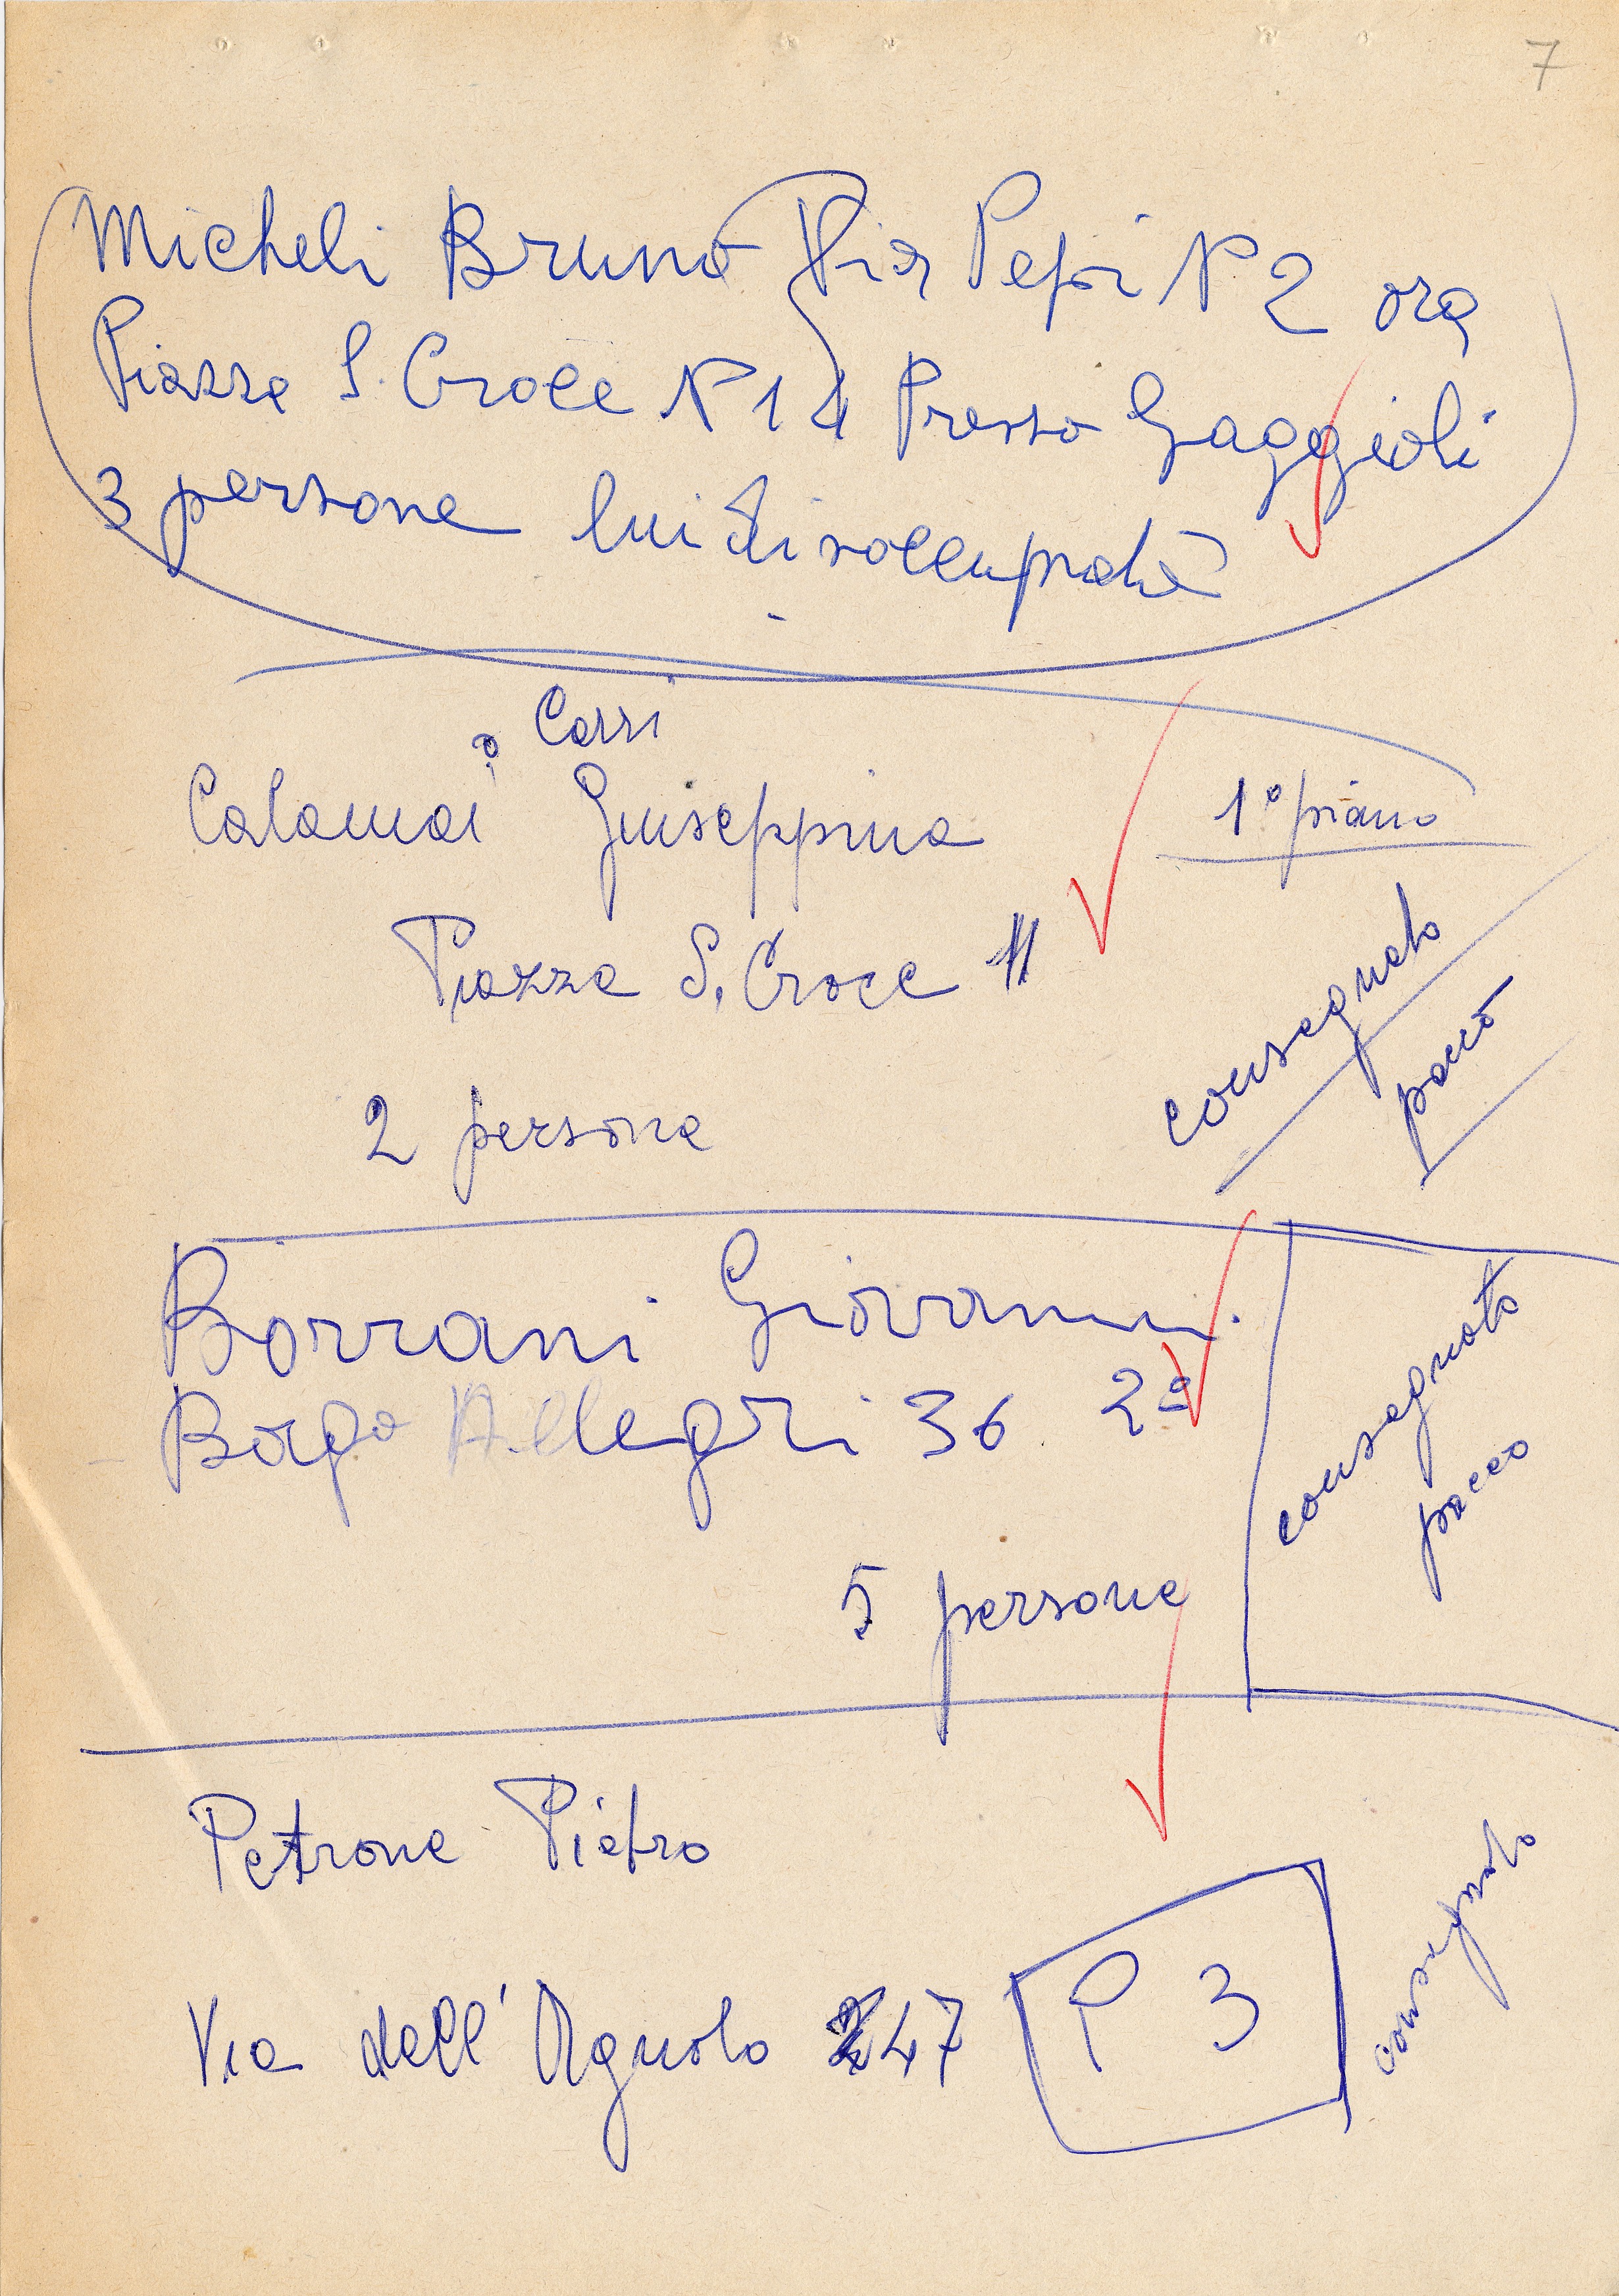 7
Micheli Bruno Via Pepi N 2 ora
Piazza S. Croce N 14 Presso Gaggioli
3 persone lui disoccupato
o Corsi
Calamai Giuseppina 1° piano
Piazza S. Croce 11
consegnato
pacco
2 persone
Borrani Giovanni
Borgo Allegri 36 2°
consegnato
pacco
5 persone
Petrone Pietro
Via dell' Agnolo 47
P 3
consegnato